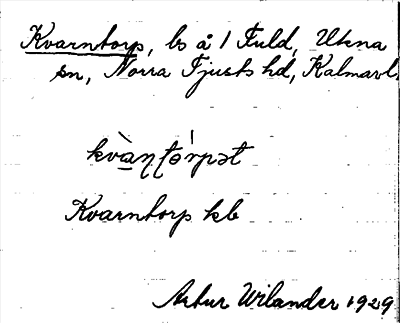 Kvarntorp, ls å 1 Fuld, Ukna
sn, Norra Tjusts hd, Kalmarl.
kvà̱ɳʈórpət
Kvarntorp kb
Artur Wilander 1929